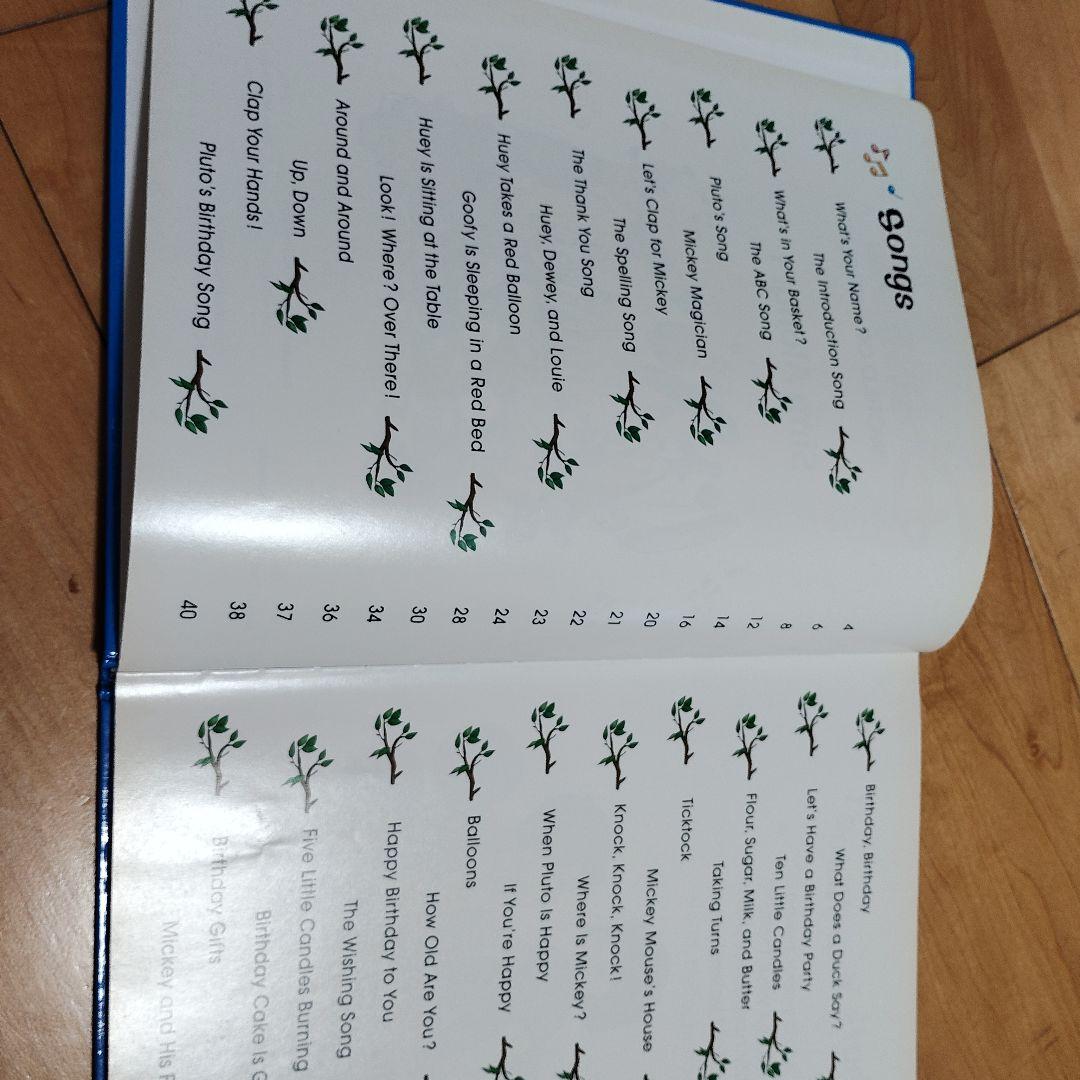 Songs
What's Your Name? 4
The Introduction Song 6
What's in Your Basket? 8
The ABC Song 12
Pluto's Song 14
Mickey Magician 16
Let's Clap for Mickey 20
The Spelling Song 21
The Thank You Song 22
Huey, Dewey, and Louie 23
Huey Takes a Red Balloon 24
Goofy Is Sleeping in a Red Bed 28
Huey Is Sitting at the Table 30
Look! Where? Over There! 34
Around and Around 36
Up, Down 37
Clap Your Hands! 38
Pluto's Birthday Song 40
Birthday, Birthday
What Does a Duck Say?
Let's Have a Birthday Party
Ten Little Candles
Flour, Sugar, Milk, and Butter
Taking Turns
Ticktock
Mickey Mouse's House
Knock, Knock, Knock!
Where Is Mickey?
When Pluto Is Happy
If You're Happy
Balloons
How Old Are You?
Happy Birthday to You
The Wishing Song
Five Little Candles Burning
Birthday Cake Is
Birthday Gifts
Mickey and His